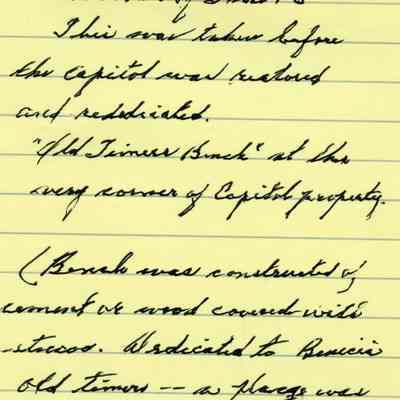 This was taken before
the capitol was restored
and rededicated.
"Old Timers Bench" at the
very corner of Capitol property.
(Bench was constructed of
cement or wood covered with
stucco. Dedicated to Benicia
old timers -- a plaque was